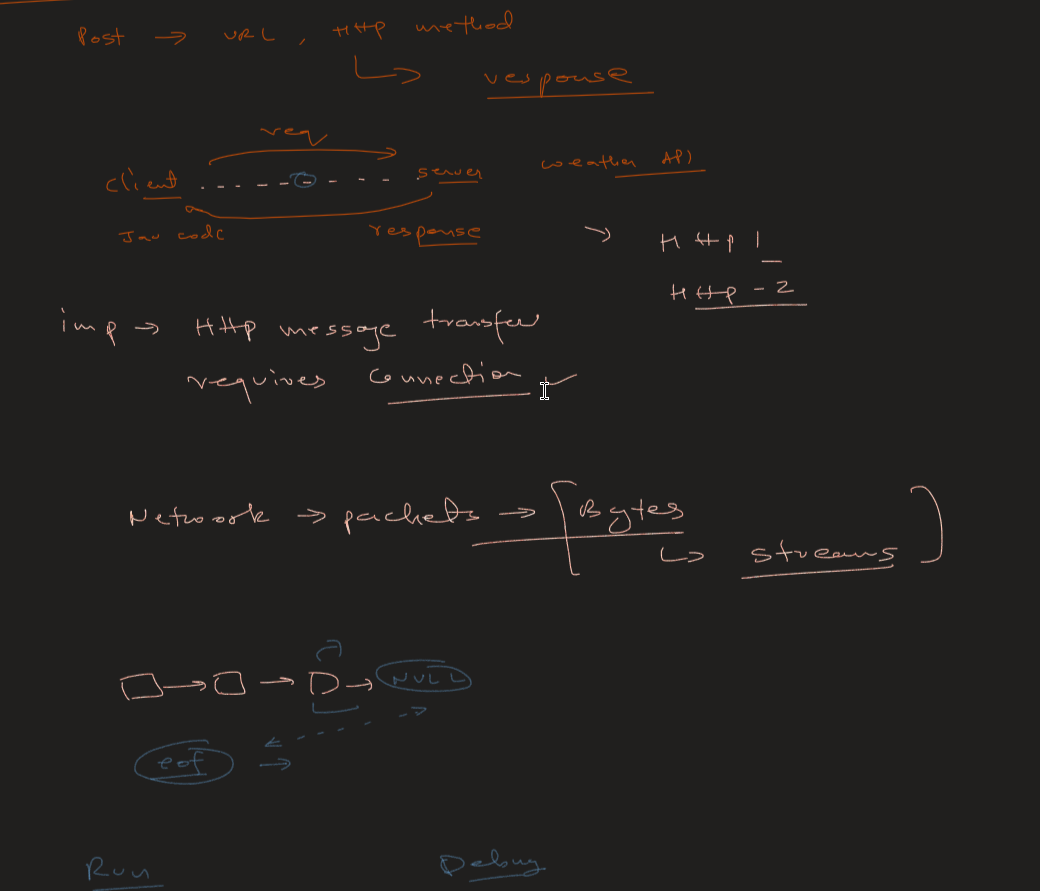 Post → URL, Http method
↳ response
req
client - - - - - - - - server
weather API
Jav code
response
→ Http 1
Http - 2
imp → Http message transfer
requires connection ✓
Network → packets → [Bytes
↳ streams]
NULL
eof →
Run
Debug